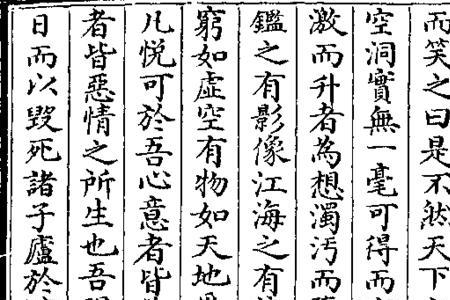 而笑之曰是不然天下
空洞實無一毫可得而
激而升者為想濁汚而
鑑之有影像江海之有
窮如虛空有物如天地
凡悅可於吾心意者皆
者皆惡情之所生也吾
日而以毀死諸子廬於